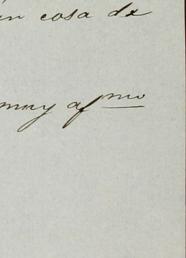 un cosa de
muy af^mo